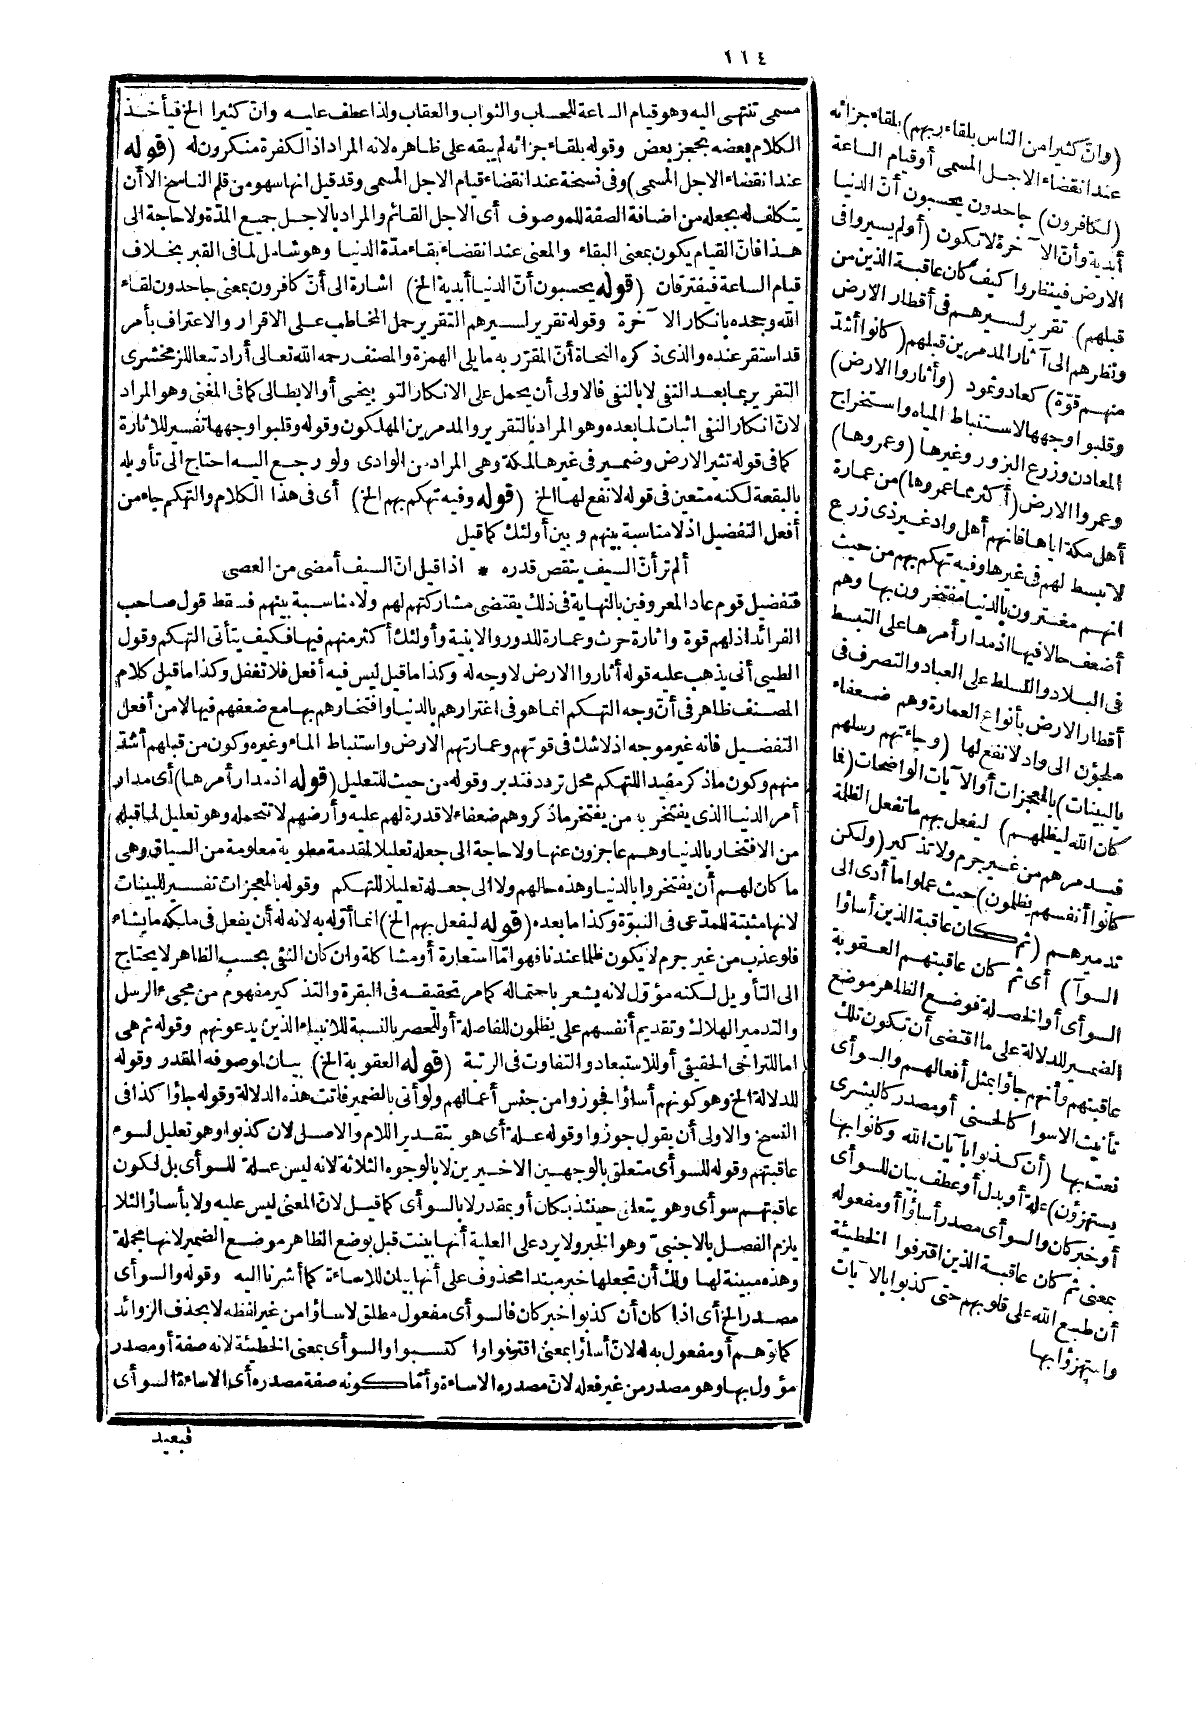 ١١٤
مسمى تنتهى اليه وهو قيام الساعة للحساب والثواب والعقاب ولذا عطف عليه وان كثيرا الخ فيأخذ
الكلام بعضه بحجز بعض وقوله بلقاء جزائه لم يبقه على ظاهره لانه المراد اذ الكفرة منكرون له (قوله
عند انقضاء الاجل المسمى) وفى نسخة عند انقضاء قيام الاجل المسمى وقد قيل انها سهو من قلم الناسخ الا أن
يتكلف له بجعله من اضافة الصفة للموصوف أى الاجل القائم والمراد بالاجل جميع المدة ولا حاجة الى
هذا فانّ القيام يكون بمعنى البقاء والمعنى عند انقضاء بقاء مدّة الدنيا وهو شامل لما فى القبر بخلاف
قيام الساعة فيفترقان (قوله يحسبون أنّ الدنيا أبدية الخ) اشارة الى أنّ كافرون بمعنى جاحدون لقاء
الله وجحده بانكار الآخرة وقوله تقرير لسيرهم التقرير حمل المخاطب على الاقرار والاعتراف بأمر
قد استقر عنده والذى ذكره النحاة أنّ المقرّر به ما يلى الهمزة والمصنف رحمه الله تعالى أراد تبعا للزمخشرى
التقرير بما بعد النفى لا بالنفى فالاولى أن يحمل على الانكار التوبيخى أو الابطالى كما فى المغنى وهو المراد
لانّ انكار النفى اثبات لما بعده وهو المراد بالتقرير والمدمرين المهلكون وقوله وقلبوا وجهها تفسير للاثارة
كما فى قوله تثير الارض وضمير فى غيرها لمكة وهى المراد من الوادى ولو رجع اليه احتاج الى تأويله
بالبقعة لكنه متعين فى قوله لا نفع لها الخ (قوله وفيه تهكم بهم الخ) أى فى هذا الكلام والتهكم جاء من
أفعل التفضيل اذ لا مناسبة بينهم وبين أولئك كما قيل
ألم تر أنّ السيف ينقص قدره * اذا قيل انّ السيف أمضى من العصى
فتفضيل قوم عاد المعروفين بالنهاية فى ذلك يقتضى مشاركتهم لهم ولا مناسبة بينهم فسقط قول صاحب
الفرائد اذ لهم قوة واثارة حرث وعمارة للدور والابنية وأولئك أكثر منهم فيها فكيف يتأتى التهكم وقول
الطيبى أنى يذهب عليه قوله أثاروا الارض لا وجه له وكذا ما قيل ليس فيه أفعل فلا تغفل وكذا ما قيل كلام
المصنف ظاهر فى أنّ وجه التهكم انما هو فى اغترارهم بالدنيا وافتخارهم بها مع ضعفهم فيها لا من أفعل
التفضيل فانه غير موجه اذ لا شك فى قوتهم وعمارتهم الارض واستنباط الماء وغيره وكون من قبلهم أشدّ
منهم وكون ماذكر مفيد اللتهكم محل تردد فتدبر وقوله من حيث للتعليل (قوله اذ مدار أمرها) أى مدار
أمر الدنيا الذى يفتخر به من يفتخر ماذكر وهم ضعفاء لا قدرة لهم عليه وأرضهم لا تتحمله وهو تعليل لما قبله
من الافتخار بالدنيا وهم عاجزون عنها ولا حاجة الى جعله تعليلا لمقدمة مطوية معلومة من السياق وهى
ما كان لهم أن يفتخروا بالدنيا وهذه حالهم ولا الى جعله تعليلا للتهكم وقوله بالمعجزات تفسير للبينات
لانها مثبتة للمدّعى فى النبوّة وكذا ما بعده (قوله ليفعل بهم الخ) انما أوّله به لانه له أن يفعل فى ملكه ما يشاء
فلو عذب من غير جرم لا يكون ظلما عندنا فهو امّا استعارة أو مشاكلة وان كان النفى بحسب الظاهر لا يحتاج
الى التأويل لكنه مؤوّل لانه يشعر باحتماله كما مر تحقيقه فى البقرة والتذكير مفهوم من مجىء الرسل
والتدمير الهلاك وتقديم أنفسهم على يظلمون للفاصلة أو للحصر بالنسبة للانبياء الذين يدعونهم وقوله ثم هى
اما للتراخى الحقيقى أو للاستبعاد والتفاوت فى الرتبة (قوله العقوبة الخ) بيان لموصوفه المقدر وقوله
للدلالة الخ وهو كونهم أساؤا فجوزوا من جنس أعمالهم ولو أتى بالضمير فاتت هذه الدلالة وقوله جاؤا كذا فى
النسخ والاولى أن يقول جوزوا وقوله علة أى هو بتقدير اللام والاصل لان كذبوا وهو تعليل لسوء
عاقبتهم وقوله للسوأى متعلق بالوجهين الاخيرين لا بالوجوه الثلاثة لانه ليس علة للسوأى بل لكون
عاقبتهم سوأى وهو يتعلق حينئذ بكان أو بمقدر لا بالسوأى كما قيل لانّ المعنى ليس عليه ولا بأساؤا لئلا
يلزم الفصل بالاجنبىّ وهو الخبر ولا يرد على العلية أنها بينت قبل بوضع الظاهر موضع الضمير لانها مجملة
وهذه مبينة لها ولك أن تجعلها خبر مبتدا محذوف على أنها بيان للاساءة كما أشرنا اليه وقوله والسوأى
مصدر الخ أى اذا كان أن كذبوا خبر كان فالسوأى مفعول مطلق لاساؤا من غير لفظه لا بحذف الزوائد
كما توّهم أو مفعول به له لانّ أساؤا بمعنى اقترفوا واكتسبوا والسوأى بمعنى الخطيئة لانه صفة أو مصدر
مؤوّل بها وهو مصدر من غير فعله لانّ مصدره الاساءة وأمّا كونه صفة مصدره أى الاساءة السوأى
فبعيد
(وانّ كثيرا من الناس بلقاء ربهم) بلقاء جزائه
عند انقضاء الاجل المسمى أو قيام الساعة
(لكافرون) جاحدون يحسبون أنّ الدنيا
أبدية وأنّ الآخرة لا تكون (أولم يسيروا فى
الارض فينظروا كيف كان عاقبة الذين من
قبلهم) تقرير لسيرهم فى أقطار الارض
ونظرهم الى آثار المدمرين قبلهم (كانوا أشدّ
منهم قوّة) كعاد وثمود (وأثاروا الارض)
وقلبوا وجهها لاستنباط المياه واستخراج
المعادن وزرع البزور وغيرها (وعمروها)
وعمروا الارض (أكثر مما عمروها) من عمارة
أهل مكة اياها فانهم أهل واد غير ذى زرع
لا تبسط لهم فى غيرها وفيه تهكم بهم من حيث
انهم مغترون بالدنيا مفتخرون بها وهم
أضعف حالا فيها اذ مدار أمرها على التبسط
فى البلاد والتسلط على العباد والتصرف فى
أقطار الارض بأنواع العمارة وهم ضعفاء
ملجؤن الى واد لا نفع لها (وجاءتهم رسلهم
بالبينات) بالمعجزات أو الآيات الواضحات (فما
كان الله ليظلمهم) ليفعل بهم ما تفعل الظلمة
فيدمرهم من غير جرم ولا تذكير (ولكن
كانوا أنفسهم يظلمون) حيث عملوا ما أدى الى
تدميرهم (ثم كان عاقبة الذين أساؤا
السوآ) أى ثم كان عاقبتهم العقوبة
السوأى أو الخصلة فوضع الظاهر موضع
الضمير للدلالة على ما اقتضى أن تكون تلك
عاقبتهم وأنهم جاؤا بمثل أفعالهم والسوأى
تأنيث الاسوا كالحسنى أو مصدر كالبشرى
نعت بها (أن كذبوا بآيات الله وكانوا بها
يستهزؤن) علة أو بدل أو عطف بيان للسوأى
أو خبر كان والسوأى مصدر أساؤا أو مفعوله
بمعنى ثم كان عاقبة الذين اقترفوا الخطيئة
أن طبع الله على قلوبهم حتى كذبوا بالآيات
واستهزؤا بها